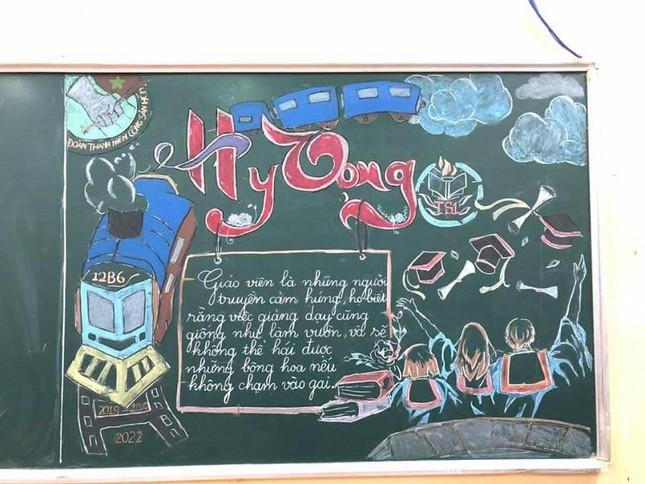 ĐOÀN THANH NIÊN CỘNG SẢN HCM
Hy Vọng
TSL
12B6
Giáo viên là những người
truyền cảm hứng, họ biết
rằng việc giảng dạy cũng
giống như làm vườn, và sẽ
không thể hái được
những bông hoa nếu
không chạm vào gai...
2019
2022